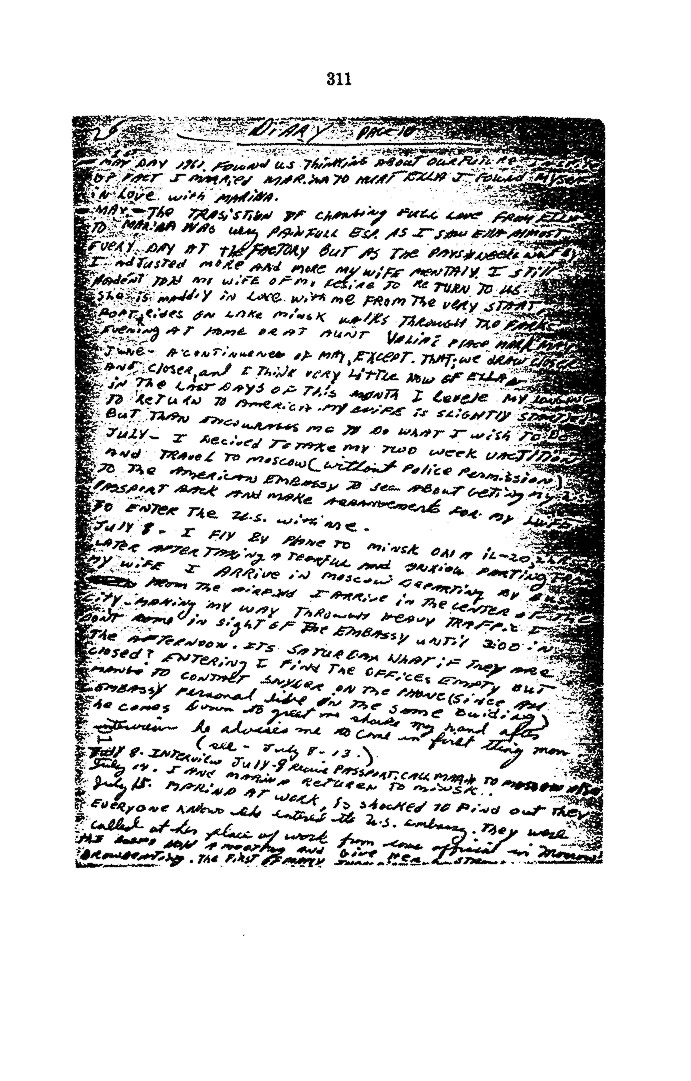 311
26 DIARY PAGE 10
MAY DAY 1961. FOUND US THINKING ABOUT OUR FUTURE. INSPITE
OF FACT I MARRIED MARINA TO HURT ELLA I FOUND MYSELF
IN LOVE with MARINA.
MAY - THE TRASISTION OF CHANGING FULL LOVE FROM ELLA
TO MARINA WAS very PAINFULL ESP. AS I SAW ELLA ALMOST
EVERY DAY AT the FACTORY BUT AS THE DAYS & WEEKS WENT BY
I ADJUSTED MORE AND MORE MY WIFE MENTALY. I STILL
HADENT TOLD MY WIFE OF MY DESIRE TO RETURN TO US.
She is maddly IN LOVE with me FROM THE very START
BOAT RIDES ON LAKE MINSK WALKS THROUGH THE PARKS
EVENING AT HOME OR AT AUNT VALIA'S PLACE MARK MAY
JUNE - A CONTINUENCE OF MAY, EXCEPT. THAT; WE DRAW CLOSER
AND CLOSER, and I THINK VERY LITTLE NOW OF ELLA
IN THE LAST DAYS OF THIS MONTH I my LONGING
TO RETURN TO AMERICA. MY WIFE IS SLIGHTLY STARTLED
BUT THAN ENCOURAGES ME TO DO WHAT I WISH TO DO
JULY - I DECIDED TO TAKE MY TWO WEEK VACTION
AND TRAVEL TO MOSCOW (without POLICE PERMISSION)
TO THE AMERICAN EMBASSY TO SEE ABOUT GETING MY
PASSPORT BACK AND MAKE ARRANGEMENTS FOR MY WIFE
TO ENTER THE U.S. WITH ME.
JULY 8 - I FLY BY PLANE TO MINSK ON A IL-20,
LATER AFTER TAKING A TEARFUL AND ANXIOUS PARTING FROM
MY WIFE I ARRIVE IN MOSCOW DEPARTING BY BUS
FROM THE AIRFILD I ARRIVE IN THE CENTER OF THE
CITY. MAKING MY WAY THROUGH HEAVY TRAFFIC I
DON'T COME IN SIGHT OF THE EMBASSY UNTIL 3:00 IN
THE AFTERNOON. ITS SATURDAY WHAT IF THEY ARE
CLOSED? ENTERING I FIND THE OFFICES EMPTY BUT
MANGE TO CONTACT SNYDER ON THE PHONE (SINCE ALL
EMBASSY PERSONAL LIVE IN THE SAME BUIDING)
he comes down to greet me shake my hand after
interview he advises me to come in first thing mon.
(see - July 8-13.)
July 8. INTERVIEW JULY 9 PASSPORT; CALL MARINA TO MOSCOW ALSO
July 14. I AND MARINA RETURN TO MINSK.
July 15. MARINA AT WORK, IS SHOCKED TO FIND OUT THEY
EVERYONE KNOWS she entered the U.S. embassy. They were
called at her place of work from some official in Moscow.
THE BOSSES HOLD A MEETING AND GIVE HER A STRONG
BROWBEATING. THE FIRST OF MANY